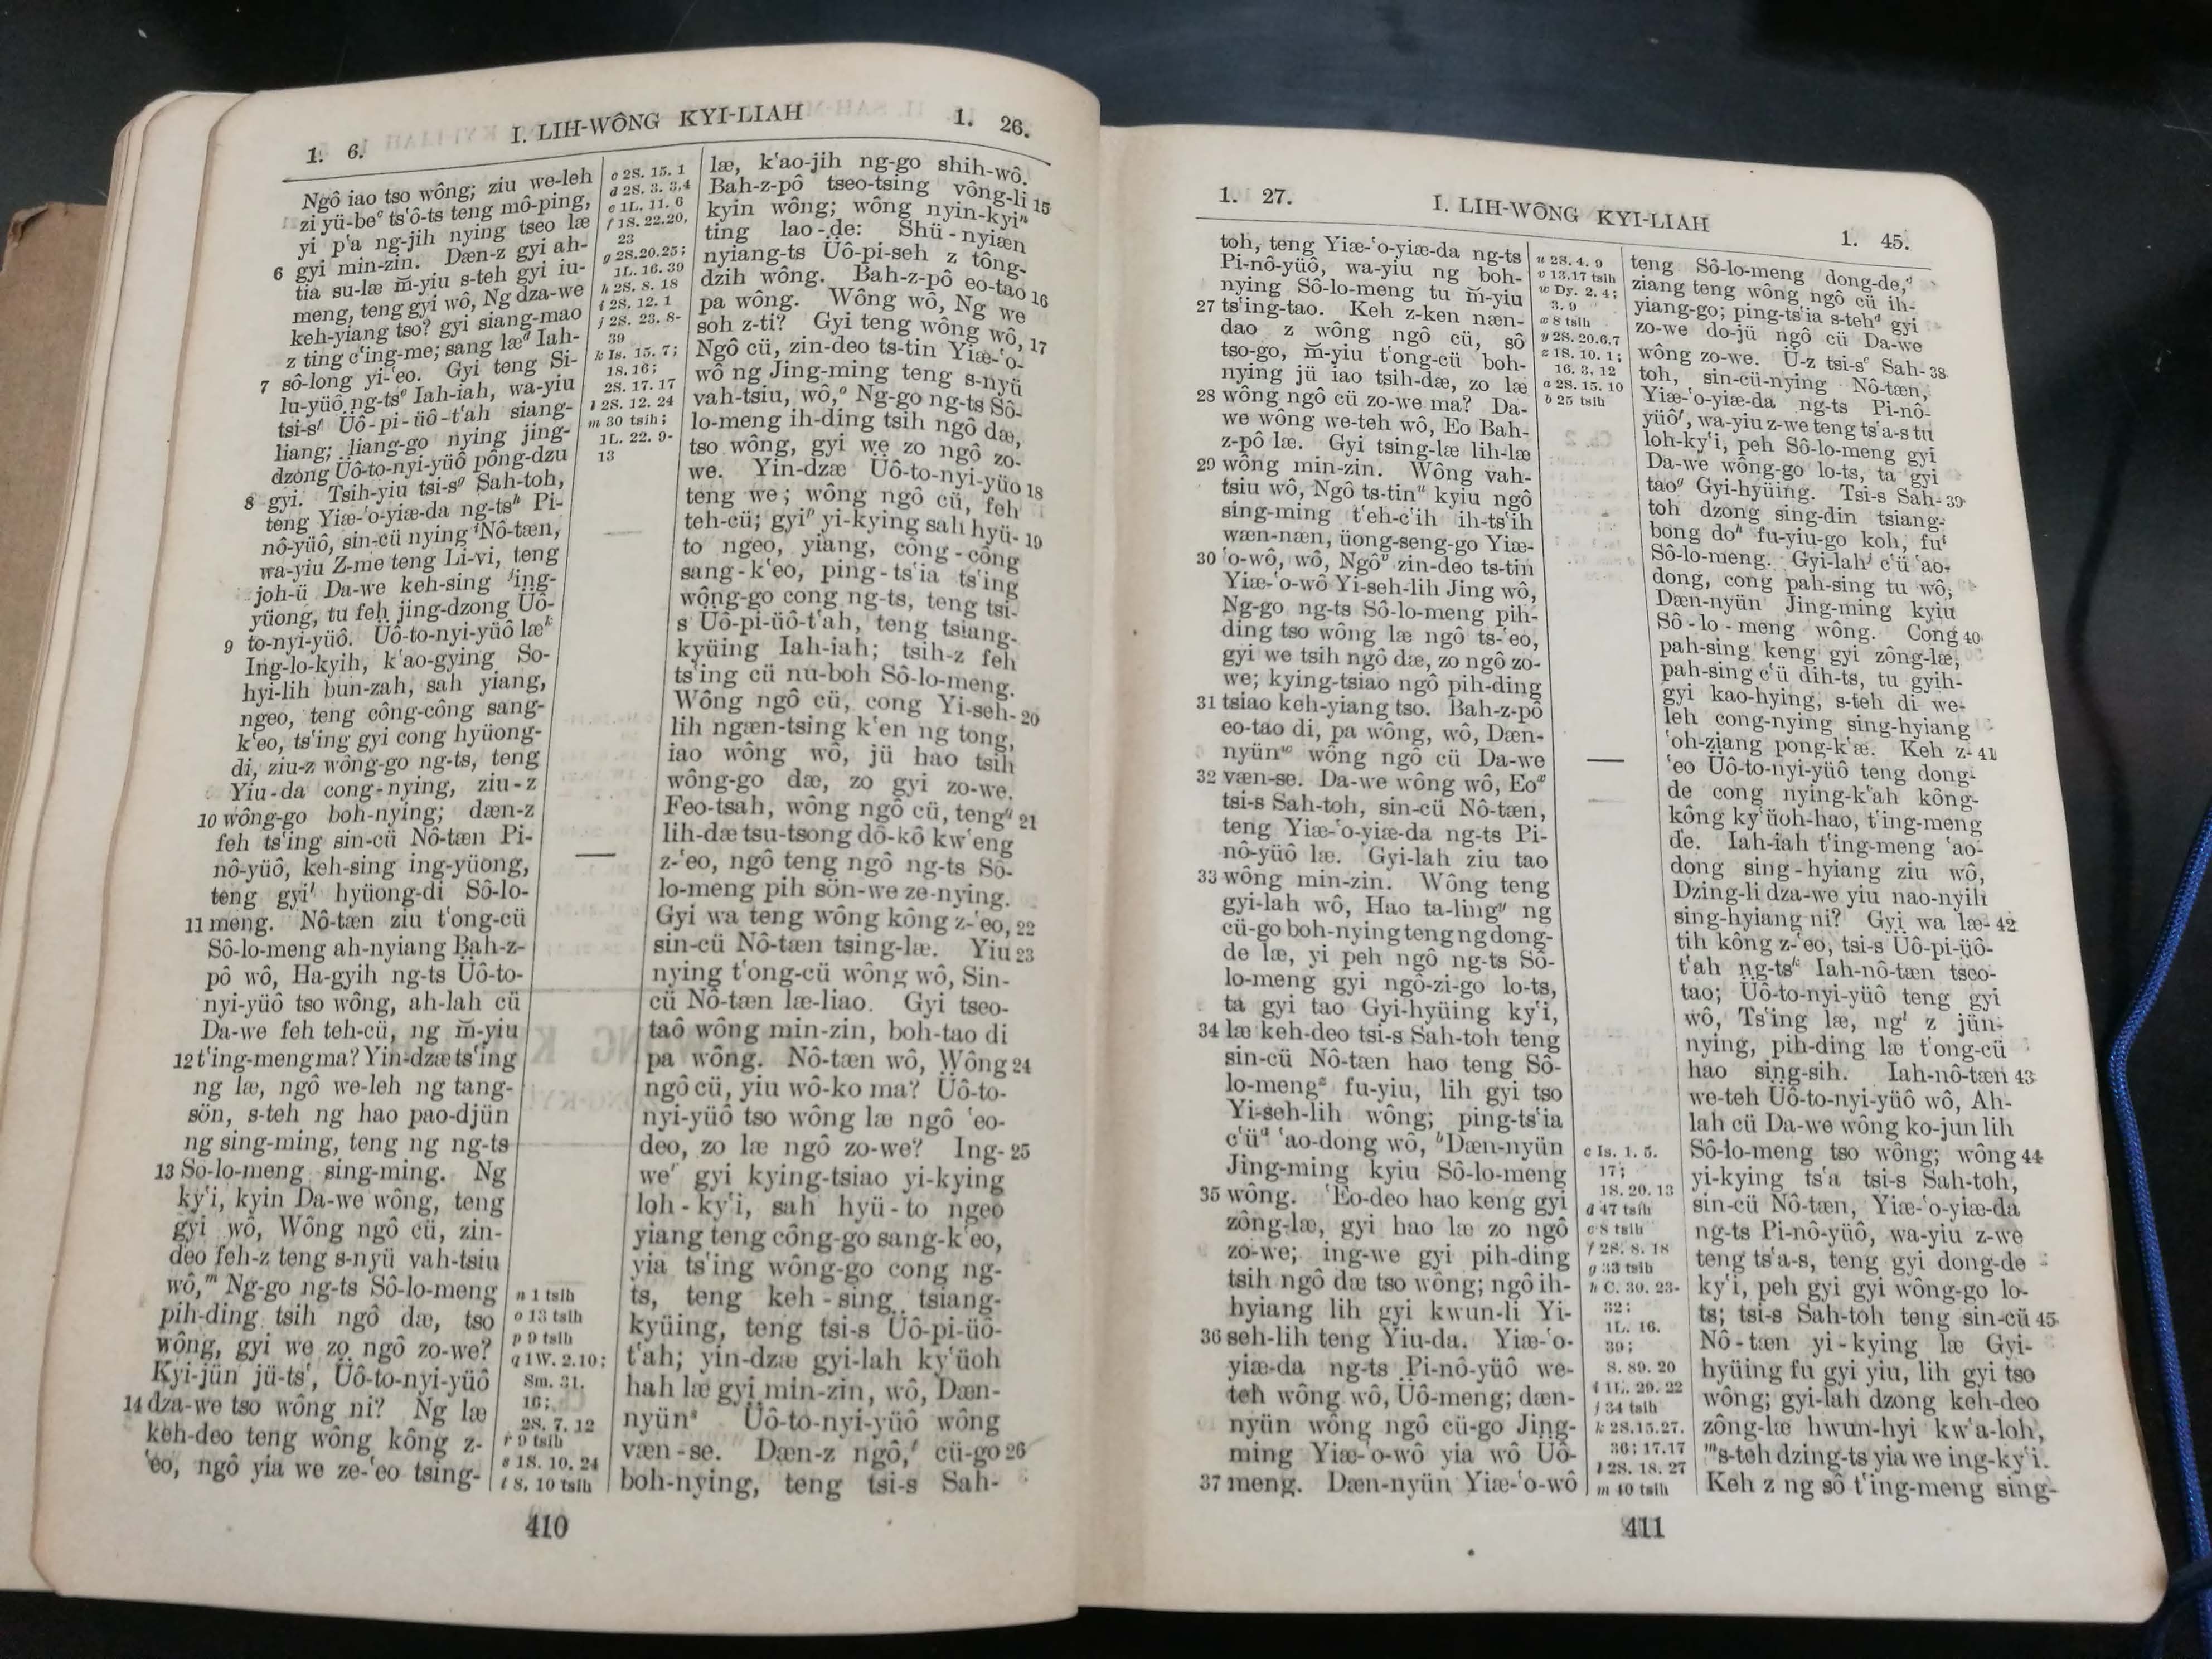 1. 6.
I. LIH-WÔNG KYI-LIAH
1. 26.
Ngô iao tso wông; ziu we-leh
zi yü-beᶜ ts'ô-ts teng mô-ping,
yi p'a ng-jih nying tseo læ
6 gyi min-zin. Dæn-z gyi ah-
tia su-læ m̆-yiu s-teh gyi iu-
meng, teng gyi wô, Ng dza-we
keh-yiang tso? gyi siang-mao
z ting c'ing-me; sang læᵈ Iah-
7 sô-long yi-'eo. Gyi teng Si-
lu-yüô ng-tsᵉ Iah-iah, wa-yiu
tsi-sᶠ Üô-pi-üô-t'ah siang-
liang; liang-go nying jing-
dzong Üô-to-nyi-yüô pông-dzu
8 gyi. Tsih-yiu tsi-sᵍ Sah-toh,
teng Yiæ-'o-yiæ-da ng-tsʰ Pi-
nô-yüô, sin-cü nying ⁱNô-tæn,
wa-yiu Z-me teng Li-vi, teng
joh-ü Da-we keh-sing ʲing-
yüong, tu feh jing-dzong Üô-
9 to-nyi-yüô. Üô-to-nyi-yüô læᵏ
Ing-lo-kyih, k'ao-gying So-
hyi-lih bun-zah, sah yiang,
ngeo, teng công-công sang-
k'eo, ts'ing gyi cong hyüong-
di, ziu-z wông-go ng-ts, teng
Yiu-da cong-nying, ziu-z
10 wông-go boh-nying; dæn-z
feh ts'ing sin-cü Nô-tæn Pi-
nô-yüô, keh-sing ing-yüong,
teng gyiˡ hyüong-di Sô-lo-
11 meng. Nô-tæn ziu t'ong-cü
Sô-lo-meng ah-nyiang Bah-z-
pô wô, Ha-gyih ng-ts Üô-to-
nyi-yüô tso wông, ah-lah cü
Da-we feh teh-cü, ng m̆-yiu
12 t'ing-meng ma? Yin-dzæ ts'ing
ng læ, ngô we-leh ng tang-
sön, s-teh ng hao pao-djün
ng sing-ming, teng ng ng-ts
13 Sô-lo-meng sing-ming. Ng
ky'i, kyin Da-we wông, teng
gyi wô, Wông ngô cü, zin-
deo feh-z teng s-nyü vah-tsiu
wô,ᵐ Ng-go ng-ts Sô-lo-meng
pih-ding tsih ngô dæ, tso
wông, gyi we zo ngô zo-we?
Kyi-jün jü-ts', Üô-to-nyi-yüô
14 dza-we tso wông ni? Ng læ
keh-deo teng wông kông z-
'eo, ngô yia we ze-'eo tsing-
c 2S. 15. 1
d 2S. 3. 3,4
e 1L. 11. 6
f 1S. 22.20,
23
g 2S.20.25;
1L. 16. 39
h 2S. 8. 18
i 2S. 12. 1
j 2S. 23. 8-
39
k Is. 15. 7;
18. 16;
2S. 17. 17
l 2S. 12. 24
m 30 tsih;
1L. 22. 9-
13
n 1 tsih
o 13 tsih
p 9 tsih
q 1W. 2.10;
Sm. 31.
16;
2S. 7. 12
r 9 tsih
s 1S. 10. 24
t 8, 10 tsih
læ, k'ao-jih ng-go shih-wô.
Bah-z-pô tseo-tsing vông-li 15
kyin wông; wông nyin-kyiⁿ
ting lao-de: Shü-nyiæn
nyiang-ts Üô-pi-seh z tông-
dzih wông. Bah-z-pô eo-tao 16
pa wông. Wông wô, Ng we
soh z-ti? Gyi teng wông wô, 17
Ngô cü, zin-deo ts-tin Yiæ-'o-
wô ng Jing-ming teng s-nyü
vah-tsiu, wô,ᵒ Ng-go ng-ts Sô-
lo-meng ih-ding tsih ngô dæ,
tso wông, gyi we zo ngô zo-
we. Yin-dzæ Üô-to-nyi-yüo 18
teng we; wông ngô cü, feh
teh-cü; gyiᵖ yi-kying sah hyü- 19
to ngeo, yiang, công-công
sang-k'eo, ping-ts'ia ts'ing
wông-go cong ng-ts, teng tsi-
s Üô-pi-üô-t'ah, teng tsiang-
kyüing Iah-iah; tsih-z feh
ts'ing cü nu-boh Sô-lo-meng.
Wông ngô cü, cong Yi-seh- 20
lih ngæn-tsing k'en ng tong,
iao wông wô, jü hao tsih
wông-go dæ, zo gyi zo-we.
Feo-tsah, wông ngô cü, tengᵠ 21
lih-dæ tsu-tsong dô-kô kw'eng
z-'eo, ngô teng ngô ng-ts Sô-
lo-meng pih sön-we ze-nying.
Gyi wa teng wông kông z-'eo, 22
sin-cü Nô-tæn tsing-læ. Yiu 23
nying t'ong-cü wông wô, Sin-
cü Nô-tæn læ-liao. Gyi tseo-
taô wông min-zin, boh-tao di
pa wông. Nô-tæn wô, Wông 24
ngô cü, yiu wô-ko ma? Üô-to-
nyi-yüô tso wông læ ngô 'eo-
deo, zo læ ngô zo-we? Ing- 25
weʳ gyi kying-tsiao yi-kying
loh-ky'i, sah hyü-to ngeo
yiang teng công-go sang-k'eo,
yia ts'ing wông-go cong ng-
ts, teng keh-sing tsiang-
kyüing, teng tsi-s Üô-pi-üô-
t'ah; yin-dzæ gyi-lah ky'üoh
hah læ gyi min-zin, wô, Dæn-
nyünˢ Üô-to-nyi-yüô wông
væn-se. Dæn-z ngô,ᵗ cü-go 26
boh-nying, teng tsi-s Sah-
410
1. 27.
I. LIH-WÔNG KYI-LIAH
1. 45.
toh, teng Yiæ-'o-yiæ-da ng-ts
Pi-nô-yüô, wa-yiu ng boh-
nying Sô-lo-meng tu m̆-yiu
27 ts'ing-tao. Keh z-ken næn-
dao z wông ngô cü, sô
tso-go, m̆-yiu t'ong-cü boh-
nying jü iao tsih-dæ, zo læ
28 wông ngô cü zo-we ma? Da-
we wông we-teh wô, Eo Bah-
z-pô læ. Gyi tsing-læ lih-læ
29 wông min-zin. Wông vah-
tsiu wô, Ngô ts-tinᵘ kyiu ngô
sing-ming t'eh-c'ih ih-ts'ih
wæn-næn, üong-seng-go Yiæ-
30 'o-wô, wô, Ngôᵛ zin-deo ts-tin
Yiæ-'o-wô Yi-seh-lih Jing wô,
Ng-go ng-ts Sô-lo-meng pih-
ding tso wông læ ngô ts-'eo,
gyi we tsih ngô dæ, zo ngô zo-
we; kying-tsiao ngô pih-ding
31 tsiao keh-yiang tso. Bah-z-pô
eo-tao di, pa wông, wô, Dæn-
nyünʷ wông ngô cü Da-we
32 væn-se. Da-we wông wô, Eoˣ
tsi-s Sah-toh, sin-cü Nô-tæn,
teng Yiæ-'o-yiæ-da ng-ts Pi-
nô-yüô læ. Gyi-lah ziu tao
33 wông min-zin. Wông teng
gyi-lah wô, Hao ta-lingʸ ng
cü-go boh-nying teng ng dong-
de læ, yi peh ngô ng-ts Sô-
lo-meng gyi ngô-zi-go lo-ts,
ta gyi tao Gyi-hyüing ky'i,
34 læ keh-deo tsi-s Sah-toh teng
sin-cü Nô-tæn hao teng Sô-
lo-mengᶻ fu-yiu, lih gyi tso
Yi-seh-lih wông; ping-ts'ia
c'üᵃ 'ao-dong wô, ᵇDæn-nyün
Jing-ming kyiu Sô-lo-meng
35 wông. 'Eo-deo hao keng gyi
zông-læ, gyi hao læ zo ngô
zo-we; ing-we gyi pih-ding
tsih ngô dæ tso wông; ngô ih-
hyiang lih gyi kwun-li Yi-
36 seh-lih teng Yiu-da. Yiæ-'o-
yiæ-da ng-ts Pi-nô-yüô we-
teh wông wô, Üô-meng; dæn-
nyün wông ngô cü-go Jing-
ming Yiæ-'o-wô yia wô Üô-
37 meng. Dæn-nyün Yiæ-'o-wô
u 2S. 4. 9
v 13.17 tsih
w Dy. 2. 4;
3. 9
x 8 tsih
y 2S. 20.6.7
z 1S. 10. 1;
16. 3, 12
a 2S. 15. 10
b 25 tsih
c Is. 1. 5.
17;
1S. 20. 13
d 47 tsih
e 8 tsih
f 2S. 8. 18
g 33 tsih
h C. 30. 23-
32;
1L. 16.
39;
S. 89. 20
i 1L. 29. 22
j 34 tsih
k 2S.15.27.
36; 17.17
l 2S. 18. 27
m 40 tsih
teng Sô-lo-meng dong-de,ᶜ
ziang teng wông ngô cü ih-
yiang-go; ping-ts'ia s-tehᵈ gyi
zo-we do-jü ngô cü Da-we
wông zo-we. Ü-z tsi-sᵉ Sah- 38
toh, sin-cü-nying Nô-tæn,
Yiæ-'o-yiæ-da ng-ts Pi-nô-
yüôᶠ, wa-yiu z-we teng ts'a-s tu
loh-ky'i, peh Sô-lo-meng gyi
Da-we wông-go lo-ts, ta gyi
taoᵍ Gyi-hyüing. Tsi-s Sah- 39
toh dzong sing-din tsiang-
bong doʰ fu-yiu-go koh, fuⁱ
Sô-lo-meng. Gyi-lahʲ c'ü 'ao-
dong, cong pah-sing tu wô,
Dæn-nyün Jing-ming kyiu
Sô-lo-meng wông. Cong 40
pah-sing keng gyi zông-læ,
pah-sing c'ü dih-ts, tu gyih-
gyi kao-hying, s-teh di we-
leh cong-nying sing-hyiang
'oh-ziang pong-k'æ. Keh z- 41
'eo Üô-to-nyi-yüô teng dong-
de cong nying-k'ah kông-
kông ky'üoh-hao, t'ing-meng
de. Iah-iah t'ing-meng 'ao-
dong sing-hyiang ziu wô,
Dzing-li dza-we yiu nao-nyih
sing-hyiang ni? Gyi wa læ- 42
tih kông z-'eo, tsi-s Üô-pi-üô-
t'ah ng-tsᵏ Iah-nô-tæn tseo-
tao; Üô-to-nyi-yüô teng gyi
wô, Ts'ing læ, ngˡ z jün-
nying, pih-ding læ t'ong-cü
hao sing-sih. Iah-nô-tæn 43
we-teh Üô-to-nyi-yüô wô, Ah-
lah cü Da-we wông ko-jun lih
Sô-lo-meng tso wông; wông 44
yi-kying ts'a tsi-s Sah-toh,
sin-cü Nô-tæn, Yiæ-'o-yiæ-da
ng-ts Pi-nô-yüô, wa-yiu z-we
teng ts'a-s, teng gyi dong-de
ky'i, peh gyi gyi wông-go lo-
ts; tsi-s Sah-toh teng sin-cü 45
Nô-tæn yi-kying læ Gyi-
hyüing fu gyi yiu, lih gyi tso
wông; gyi-lah dzong keh-deo
zông-læ hwun-hyi kw'a-loh,
ᵐs-teh dzing-ts yia we ing-ky'i.
Keh z ng sô t'ing-meng sing-
411